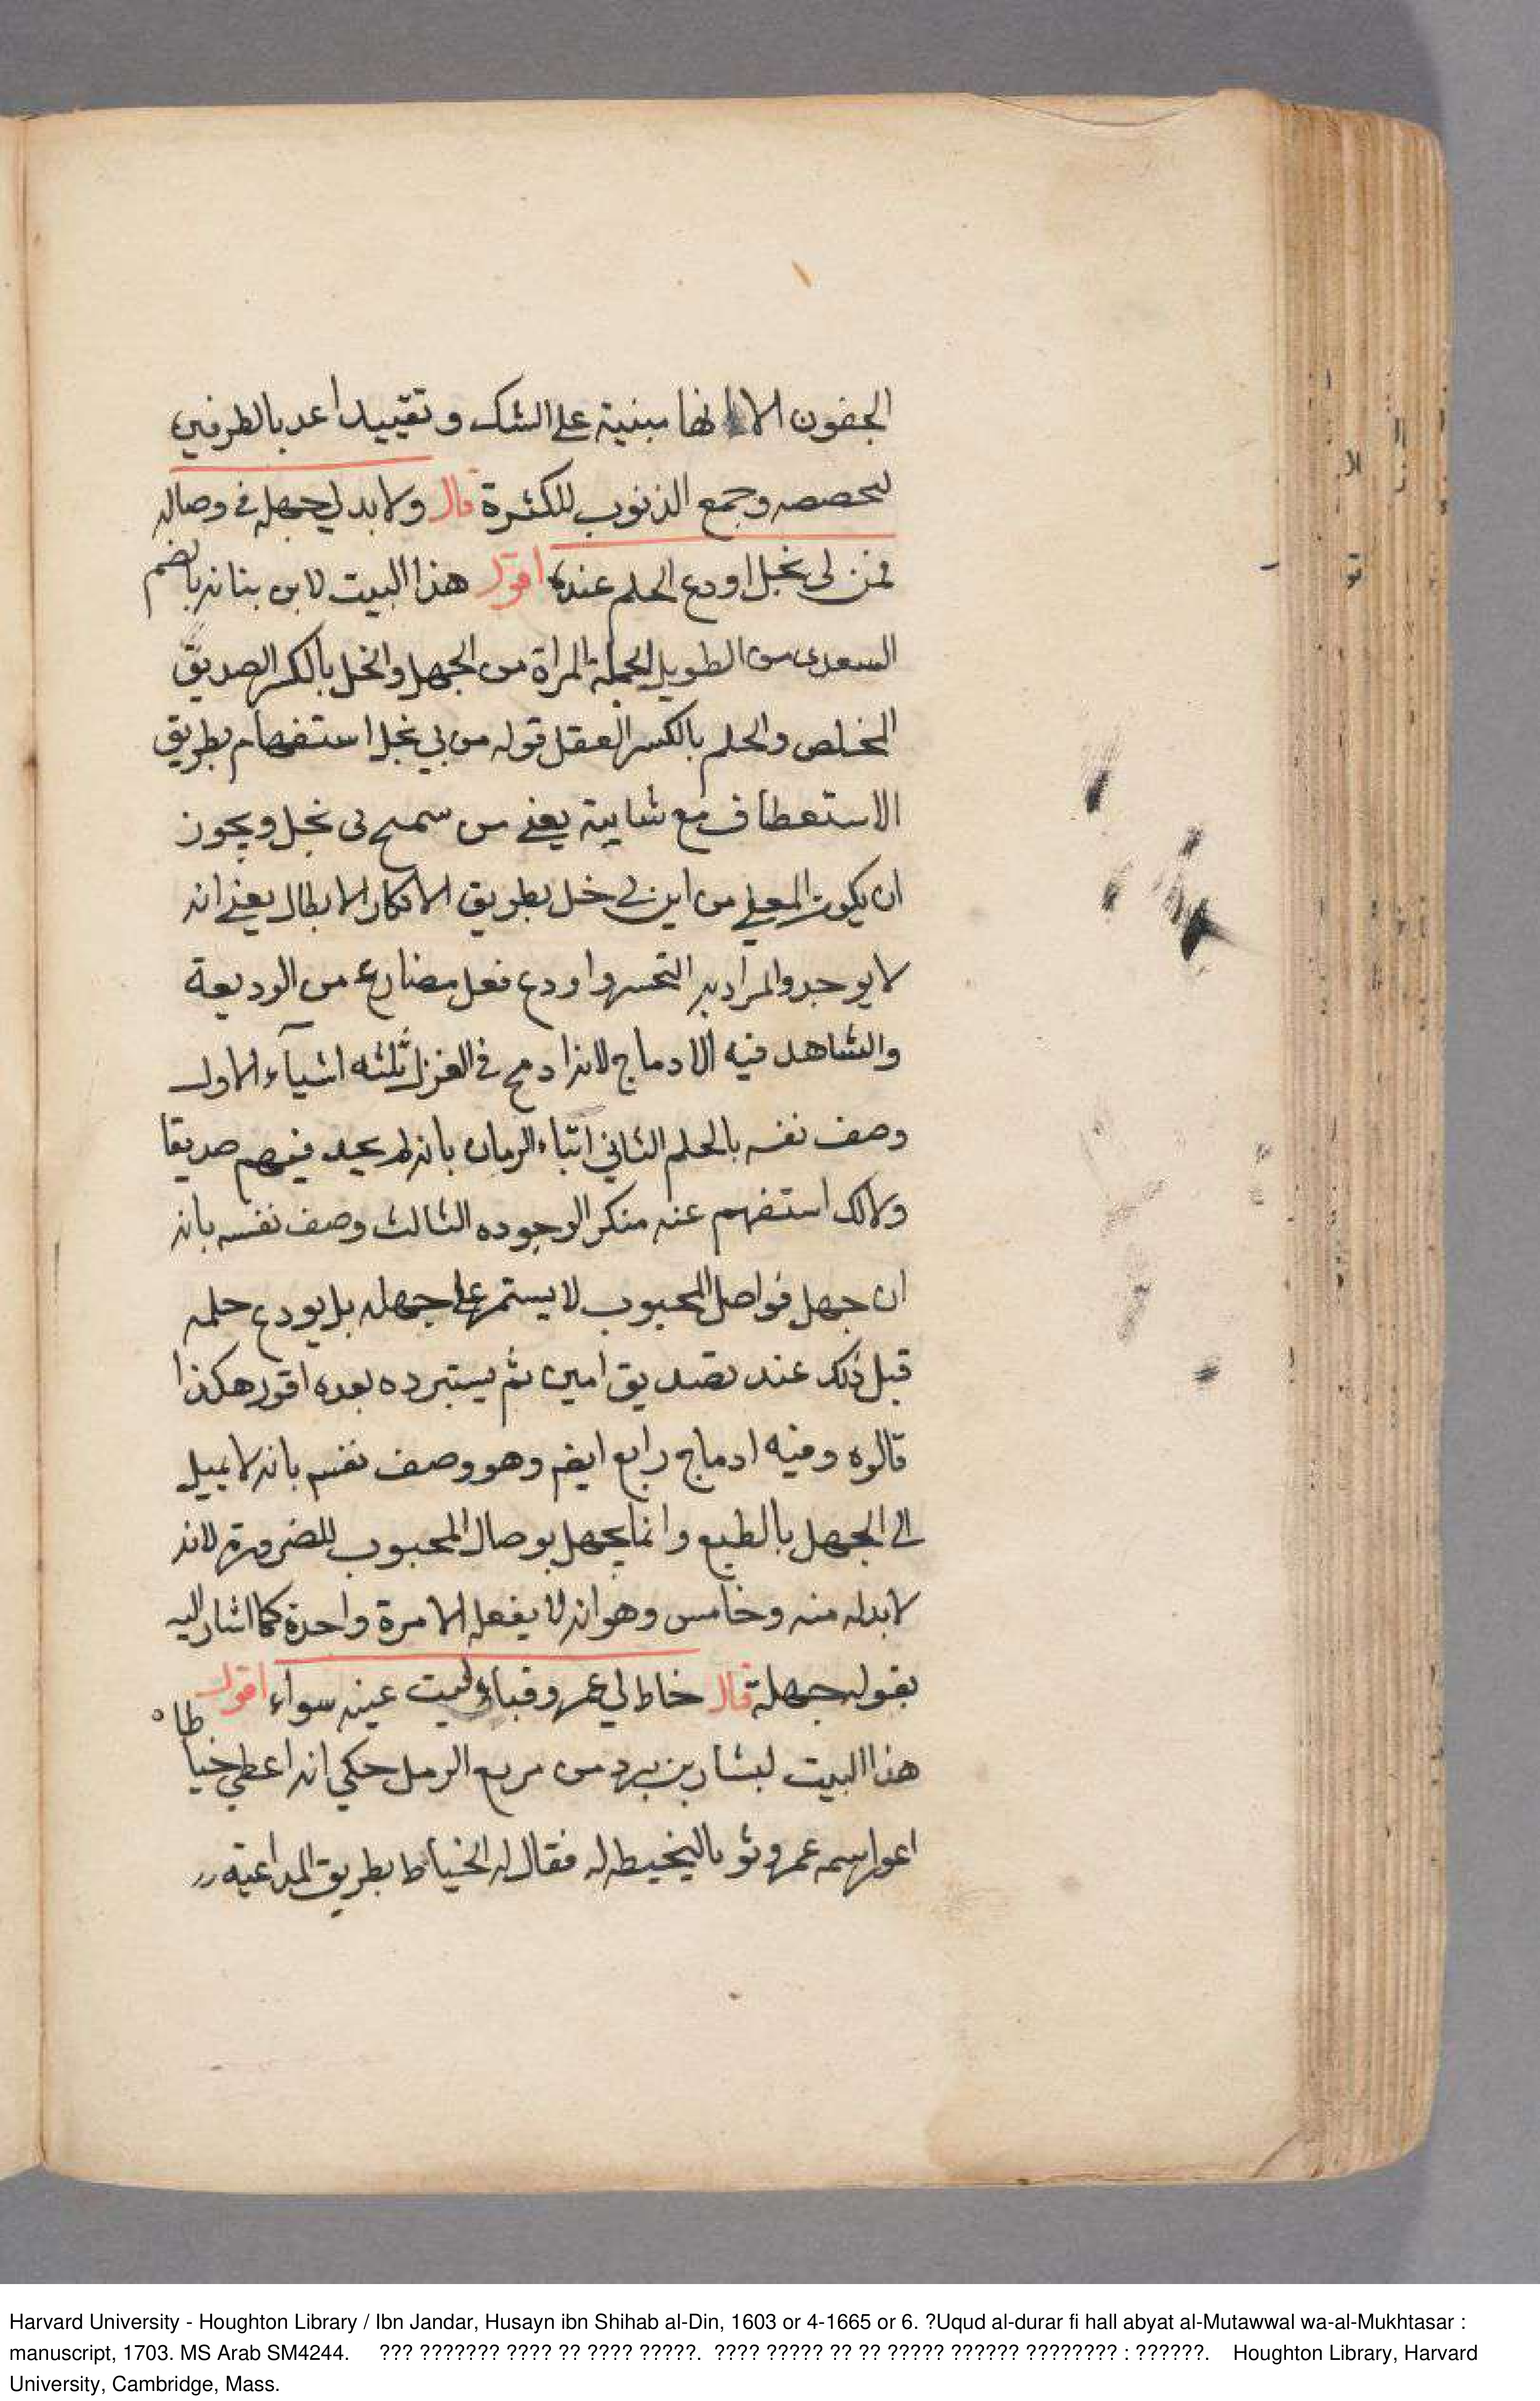 الجفون الا انها مبنية على الشك و تقييد اعد بالطرفين
لتخصصه وجمع الذنوب للكثرة قال ولا بد لي جهلة في وصاله
فمن لي بخل اودع الحلم عنده اقول هذا البيت لابن بنانه بالضم
السعدى من الطويل الجهلة المراة من الجهل والخل بالكسر الصديق
المخلص والحلم بالكسر العقل قوله من لي بخل استفهام بطريق
الاستعطاف مع شايبة يعني من سمح لى بخل ويجوز
ان يكون المعنى من اين لي خل بطريق الانكار الابطال يعني انه
لا يوجد والمراد به التحسر واودع فعل مضارع من الوديعة
والشاهد فيه الادماج لانه ادمج في الغزل ثلثه اشيآء الاول
وصف نفسه بالحلم الثاني ابناء الزمان بانه لم يجد فيهم صديقا
ولذلك استفهم عنه منكر الوجوده الثالث وصف نفسه بانه
ان جهل فواصل المحبوب لا يستمر على جهله بل يودع حلمه
قبل ذلك عند بصديق امين ثم يسترده بعده اقول هكذا
قالوه وفيه ادماج رابع ايضم وهو وصف نفسه بانه لا يميل
الى الجهل بالطبع وانما يجهل بوصال المحبوب للضرورة لانه
لا بد له منه وخامس وهو انه لا يفعله الا مرة واحدة كما اشار اليه
بقوله جهلة قال خاط لي عمرو قباء ليت عينه سواء اقول
هذا البيت لبشار بن برد من مربع الرمل حكي انه اعطى خياطا
اعور اسمه عمرو ثوبا ليخيطه له فقال له الخياط بطريق المداعبة
Harvard University - Houghton Library / Ibn Jandar, Husayn ibn Shihab al-Din, 1603 or 4-1665 or 6. ?Uqud al-durar fi hall abyat al-Mutawwal wa-al-Mukhtasar :
manuscript, 1703. MS Arab SM4244. ??? ??????? ???? ?? ???? ?????. ???? ????? ?? ?? ????? ?????? ???????? : ??????. Houghton Library, Harvard
University, Cambridge, Mass.